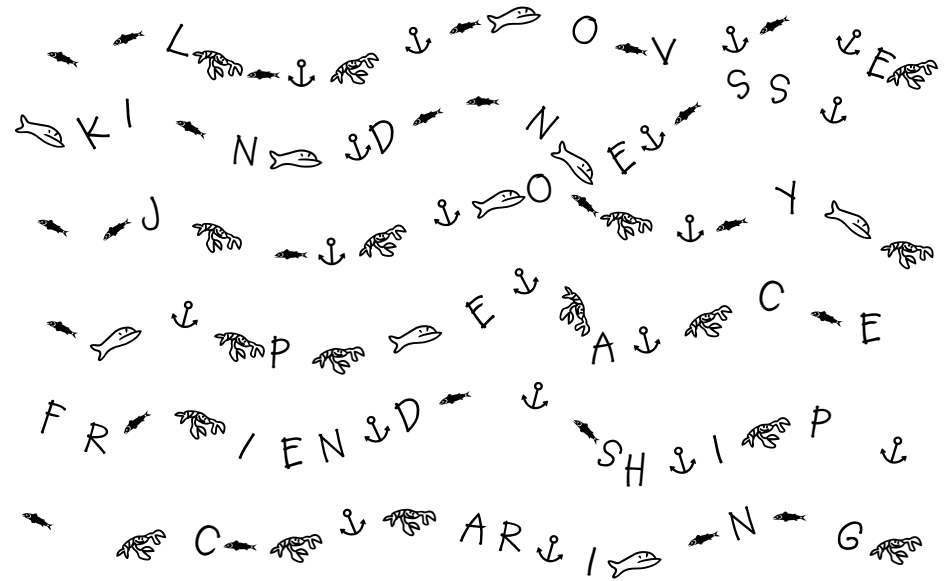 LOVE
KINDNESS
JOY
PEACE
FRIENDSHIP
CARING